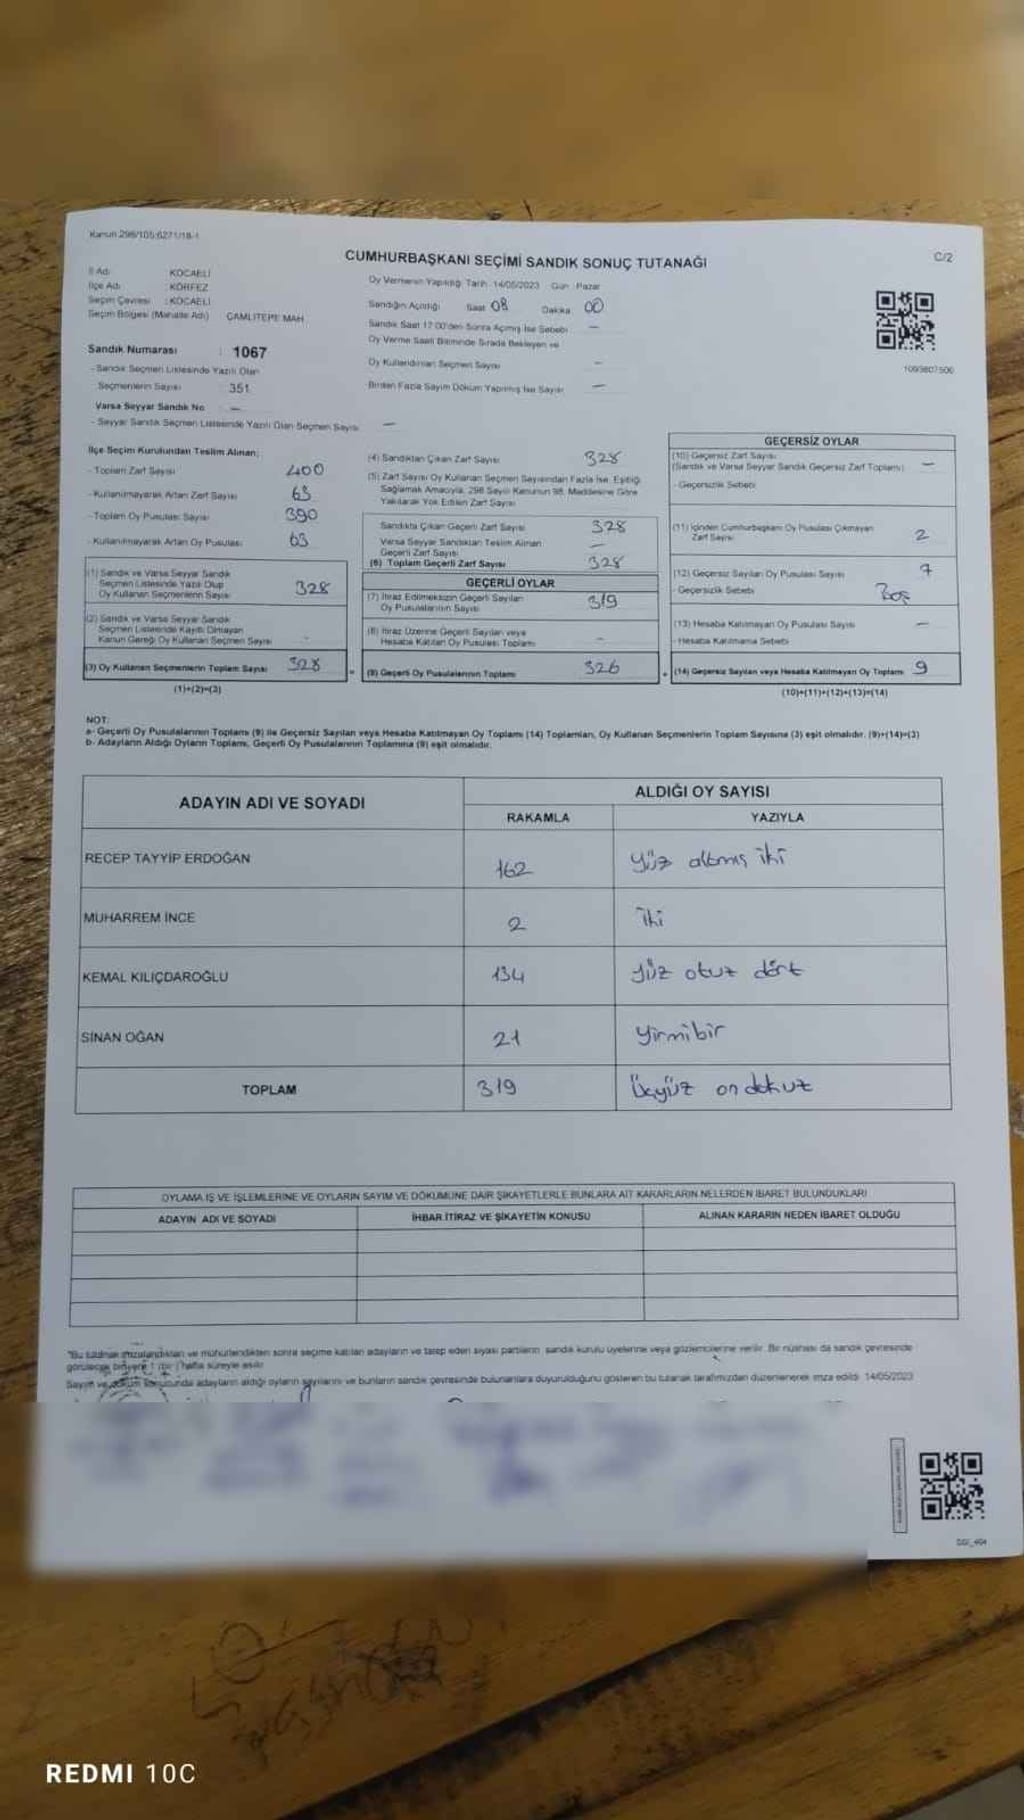 Kanun 298/105;6271/18-1
CUMHURBAŞKANI SEÇİMİ SANDIK SONUÇ TUTANAĞI
C/2
İl Adı : KOCAELİ
İlçe Adı : KÖRFEZ
Seçim Çevresi : KOCAELİ
Seçim Bölgesi (Mahalle Adı) ÇAMLITEPE MAH.
Sandık Numarası : 1067
- Sandık Seçmen Listesinde Yazılı Olan
Seçmenlerin Sayısı 351
Varsa Seyyar Sandık No —
- Seyyar Sandık Seçmen Listesinde Yazılı Olan Seçmen Sayısı —
Oy Vermenin Yapıldığı Tarih : 14/05/2023 Gün : Pazar
Sandığın Açıldığı Saat 08 Dakika 00
Sandık Saat 17:00'den Sonra Açılmış İse Sebebi —
Oy Verme Saati Bitiminde Sırada Bekleyen ve
Oy Kullandırılan Seçmen Sayısı —
Birden Fazla Sayım Döküm Yapılmış İse Sayısı —
1093807506
İlçe Seçim Kurulundan Teslim Alınan;
- Toplam Zarf Sayısı 400
- Kullanılmayarak Artan Zarf Sayısı 63
- Toplam Oy Pusulası Sayısı 390
- Kullanılmayarak Artan Oy Pusulası 63
(1) Sandık ve Varsa Seyyar Sandık
Seçmen Listesinde Yazılı Olup
Oy Kullanan Seçmenlerin Sayısı 328
(2) Sandık ve Varsa Seyyar Sandık
Seçmen Listesinde Kayıtlı Olmayan
Kanun Gereği Oy Kullanan Seçmen Sayısı -
(3) Oy Kullanan Seçmenlerin Toplam Sayısı 328
(1)+(2)=(3)
(4) Sandıktan Çıkan Zarf Sayısı 328
(5) Zarf Sayısı Oy Kullanan Seçmen Sayısından Fazla İse, Eşitliği
Sağlamak Amacıyla, 298 Sayılı Kanunun 98. Maddesine Göre
Yakılarak Yok Edilen Zarf Sayısı
Sandıkta Çıkan Geçerli Zarf Sayısı 328
Varsa Seyyar Sandıktan Teslim Alınan
Geçerli Zarf Sayısı —
(6) Toplam Geçerli Zarf Sayısı 328
GEÇERLİ OYLAR
(7) İtiraz Edilmeksizin Geçerli Sayılan
Oy Pusulalarının Sayısı 319
(8) İtiraz Üzerine Geçerli Sayılan veya
Hesaba Katılan Oy Pusulası Toplamı -
= (9) Geçerli Oy Pusulalarının Toplamı 326
GEÇERSİZ OYLAR
(10) Geçersiz Zarf Sayısı
(Sandık ve Varsa Seyyar Sandık Geçersiz Zarf Toplamı) —
- Geçersizlik Sebebi
(11) İçinden Cumhurbaşkanı Oy Pusulası Çıkmayan
Zarf Sayısı 2
(12) Geçersiz Sayılan Oy Pusulası Sayısı 7
- Geçersizlik Sebebi Boş
(13) Hesaba Katılmayan Oy Pusulası Sayısı —
- Hesaba Katılmama Sebebi
+ (14) Geçersiz Sayılan veya Hesaba Katılmayan Oy Toplamı 9
(10)+(11)+(12)+(13)=(14)
NOT:
a- Geçerli Oy Pusulalarının Toplamı (9) ile Geçersiz Sayılan veya Hesaba Katılmayan Oy Toplamı (14) Toplamları, Oy Kullanan Seçmenlerin Toplam Sayısına (3) eşit olmalıdır. (9)+(14)=(3)
b- Adayların Aldığı Oyların Toplamı, Geçerli Oy Pusulalarının Toplamına (9) eşit olmalıdır.
ADAYIN ADI VE SOYADI
ALDIĞI OY SAYISI
RAKAMLA YAZIYLA
RECEP TAYYİP ERDOĞAN 162 yüz altmış iki
MUHARREM İNCE 2 iki
KEMAL KILIÇDAROĞLU 134 yüz otuz dört
SİNAN OĞAN 21 yirmibir
TOPLAM 319 Üçyüz on dokuz
OYLAMA İŞ VE İŞLEMLERİNE VE OYLARIN SAYIM VE DÖKÜMÜNE DAİR ŞİKAYETLERLE BUNLARA AİT KARARLARIN NELERDEN İBARET BULUNDUKLARI
ADAYIN ADI VE SOYADI İHBAR,İTİRAZ VE ŞİKAYETİN KONUSU ALINAN KARARIN NEDEN İBARET OLDUĞU
"Bu tutanak imzalandıktan ve mühürlendikten sonra seçime katılan adayların ve talep eden siyasi partilerin sandık kurulu üyelerine veya gözlemcilerine verilir. Bir nüshası da sandık çevresinde
görülecek bir yere 1 (bir) hafta süreyle asılır.
Sayım ve döküm sonucunda adayların aldığı oyların sayılarını ve bunların sandık çevresinde bulunanlara duyurulduğunu gösteren bu tutanak tarafımızdan düzenlenerek imza edildi. 14/05/2023
REDMI 10C